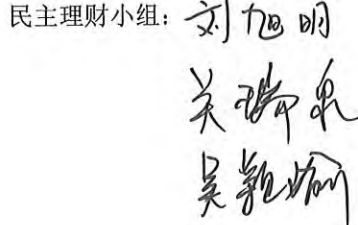 民主理财小组：刘旭明
关瑞泉
吴颖瑜